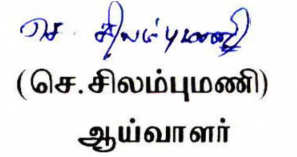 செ. சிலம்புமணி
(செ.சிலம்புமணி)
ஆய்வாளர்